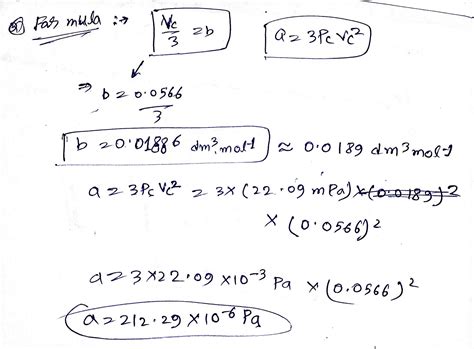 Formula :→ Vc/3 = b    a = 3Pc Vc²
⇒ b = 0.0566/3
b = 0.01886 dm³.mol-1 ≈ 0.0189 dm³mol-1
a = 3Pc Vc² = 3×(22.09 mPa) ×(0.0189)²
× (0.0566)²
a = 3×22.09×10⁻³ Pa × (0.0566)²
a = 212.29×10⁻⁶ Pa